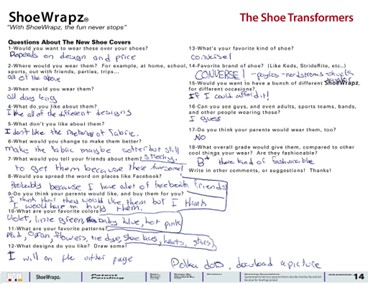 ShoeWrapz®
"With ShoeWrapz, the fun never stops"
The Shoe Transformers
Questions About The New Shoe Covers
1-Would you want to wear these over your shoes?
Depends on design and price
2-Where would you wear them? For example, at home, school, sports, out with friends, parties, trips...
all of the above
3-When would you wear them?
all day long
4-What do you like about them?
I like all of the different designs
5-What don't you like about them?
I don't like the material of fabric.
6-What would you change to make them better?
make the fabric maybe softer but still
7-What would you tell your friends about them?
to get them because their awesome!
8-Would you spread the word on places like Facebook?
Probably because I have alot of facebook friends
9-Do you think your parents would like, and buy them for you?
I think that they would like them but I think
I would have to buy them.
10-What are your favorite colors?
Violet, lime green, baby blue, hot pink
11-What are your favorite patterns?
flowers, tie dye, shoe laces, hearts, stars,
12-What designs do you like? Draw some!
I will on the other page
Polka dots, download a picture
13-What's your favorite kind of shoe?
converse!
14-Favorite brand of shoe? (Like Keds, StrideRite, etc..)
CONVERSE! -
15-Would you want to have a bunch of different ShoeWrapz, for different occasions?
If I could afford it!
16-Can you see guys, and even adults, sports teams, bands, and other people wearing these?
I guess
17-Do you think your parents would wear them, too?
No
18-What overall grade would give them, compared to other cool things your wear? Are they fashionable?
B+ there kind of fashionable
Write in other comments, or suggestions! Thanks!
ShoeWrapz.
Patent
Pending
14